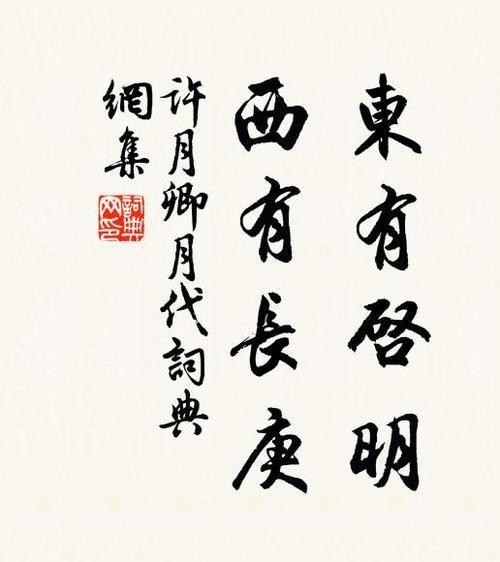 東有啓明
西有長庚
許月卿月代詞典
網集
詞典
网印